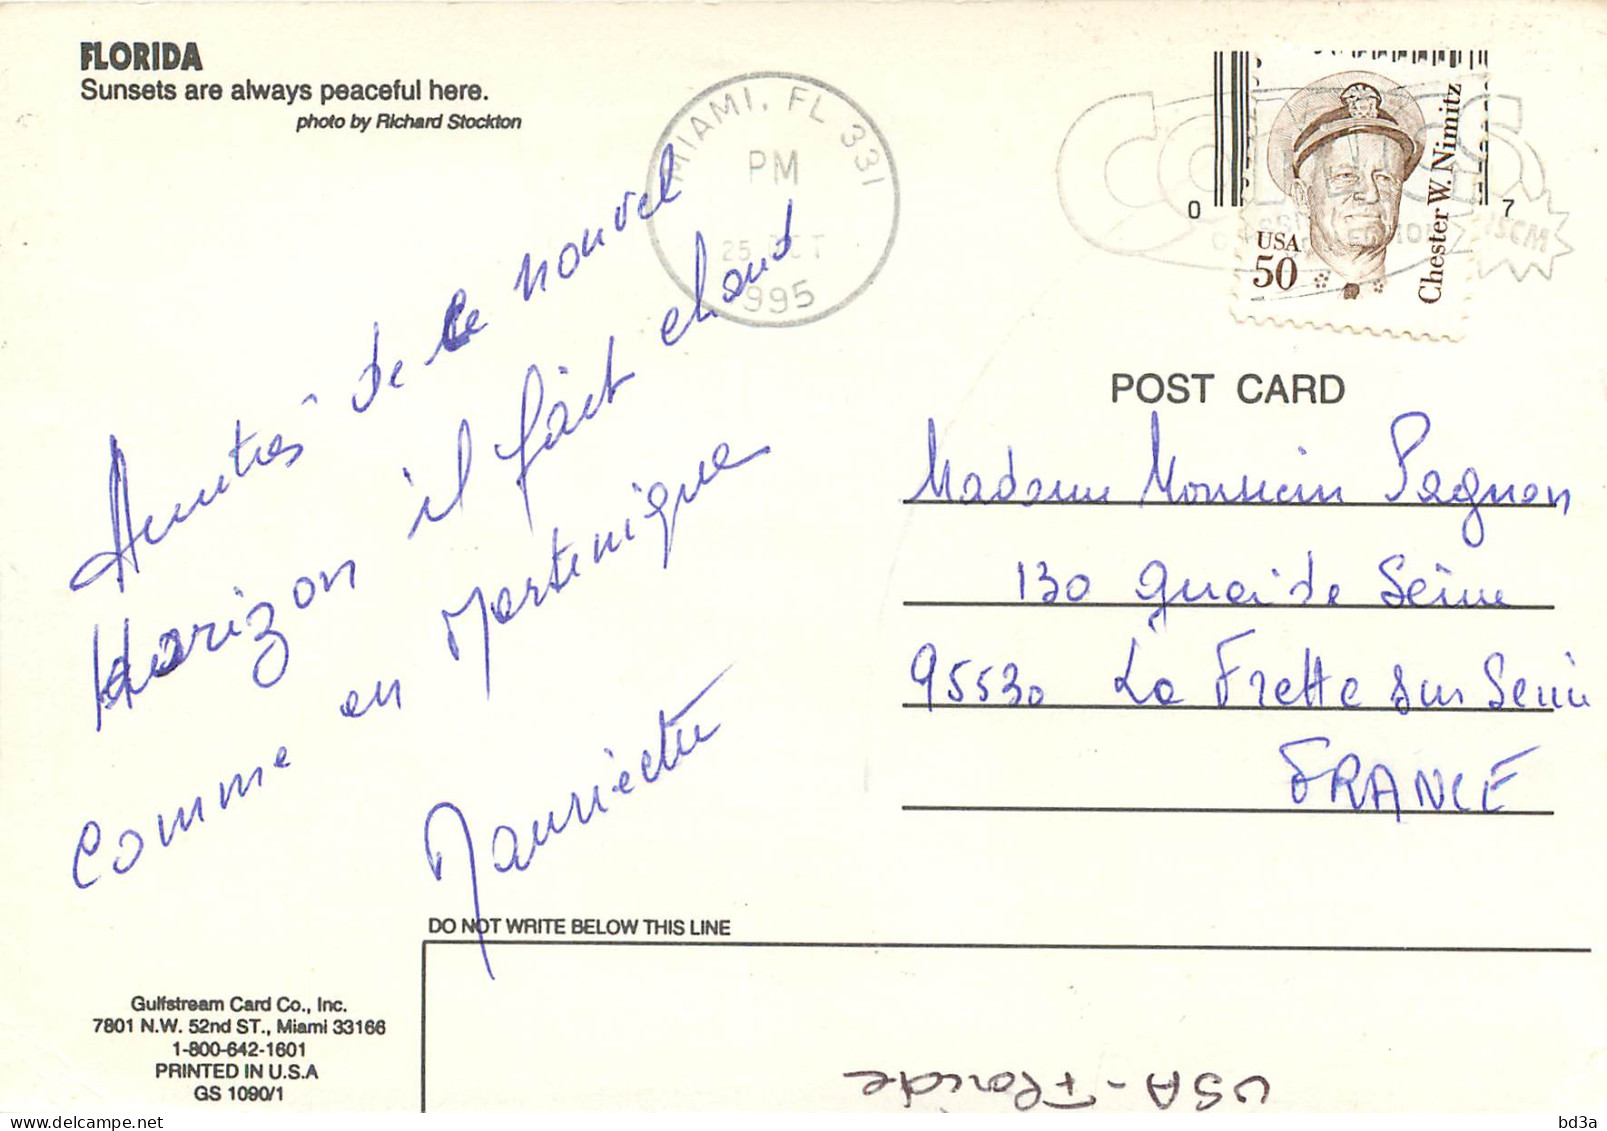 FLORIDA
Sunsets are always peaceful here.
photo by Richard Stockton
MIAMI, FL 331
PM
25 OCT
1995
0 7
USA
50
Chester W. Nimitz
ISCM
POST CARD
Amitiés de ce nouvel
Horizon il fait chaud
comme en Martinique
Mauricette
Madame Monsieur Pagnon
130 quai de Seine
95530 La Frette sur Seine
FRANCE
DO NOT WRITE BELOW THIS LINE
Gulfstream Card Co., Inc.
7801 N.W. 52nd ST., Miami 33166
1-800-642-1601
PRINTED IN U.S.A
GS 1090/1
USA - Floride
bd3a